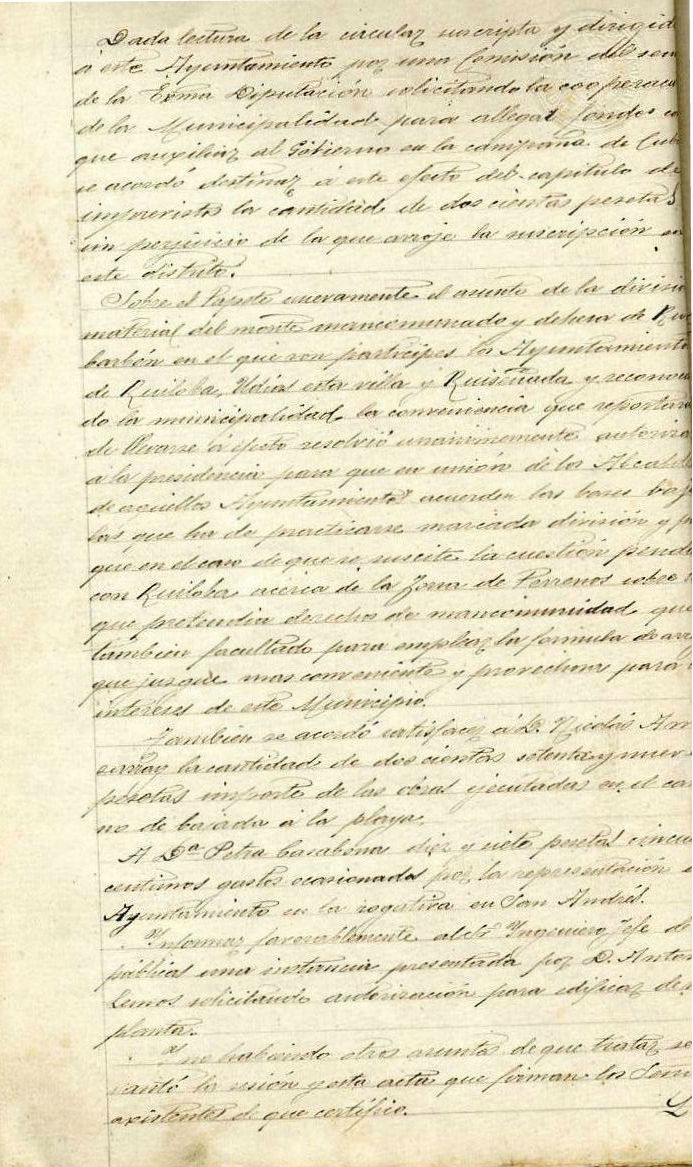 Dada lectura de la circular suscripta y dirigid
á este Ayuntamiento por una Comisión del sen
de la Exma Diputación solicitando la cooperac
de la Municipalidad para allegar fondos co
que auxiliar al Gobierno en la campaña de Cub
se acordó destinar á este efecto del capitulo de
imprevistos la cantidad de dos cientas pesetas
sin perjuicio de la que arroje la suscripción en
este distrito.
Sobre el Tapete nuevamente el asunto de la divisi
material del monte mancomunado y dehesa de Ru
barbón en el que son participes los Ayuntamiento
de Ruiloba, Udias esta villa y Ruiseñada y reconoci
do la municipalidad la conveniencia que reportar
de llevarse á efecto resolvió unanimemente autoriza
á la presidencia para que en unión de los Alcald
de aquellos Ayuntamientos acuerden las bases bajo
las que ha de practicarse marcada división y p
que en el caso de que se suscite la cuestión pend
con Ruiloba acerca de la Zona de Terrenos sobre
que pretendia derecho de mancomunidad que
tambien facultado para emplear la formula de arr
que juzgue mas conveniente y provechosa para
intereses de este Municipio.
Tambien se acordó satisfacer á D. Nicolás
la cantidad de dos cientas setenta y nuev
pesetas importe de las obras ejecutadas en el cam
no de bajada á la playa.
A Dª Petra Carabena diez y siete pesetas cincu
centimos gastos ocasionados por la representación
Ayuntamiento en la rogativa en San Andrés.
Informar favorablemente al Sr Ingeniero Jefe de
públicas una instancia presentada por D. Anton
Lemos solicitando autorización para edificar de
planta.
Y no habiendo otros asuntos de que tratar se
vantó la sesión y esta acta que firman los Seño
asistentes de que certifico.